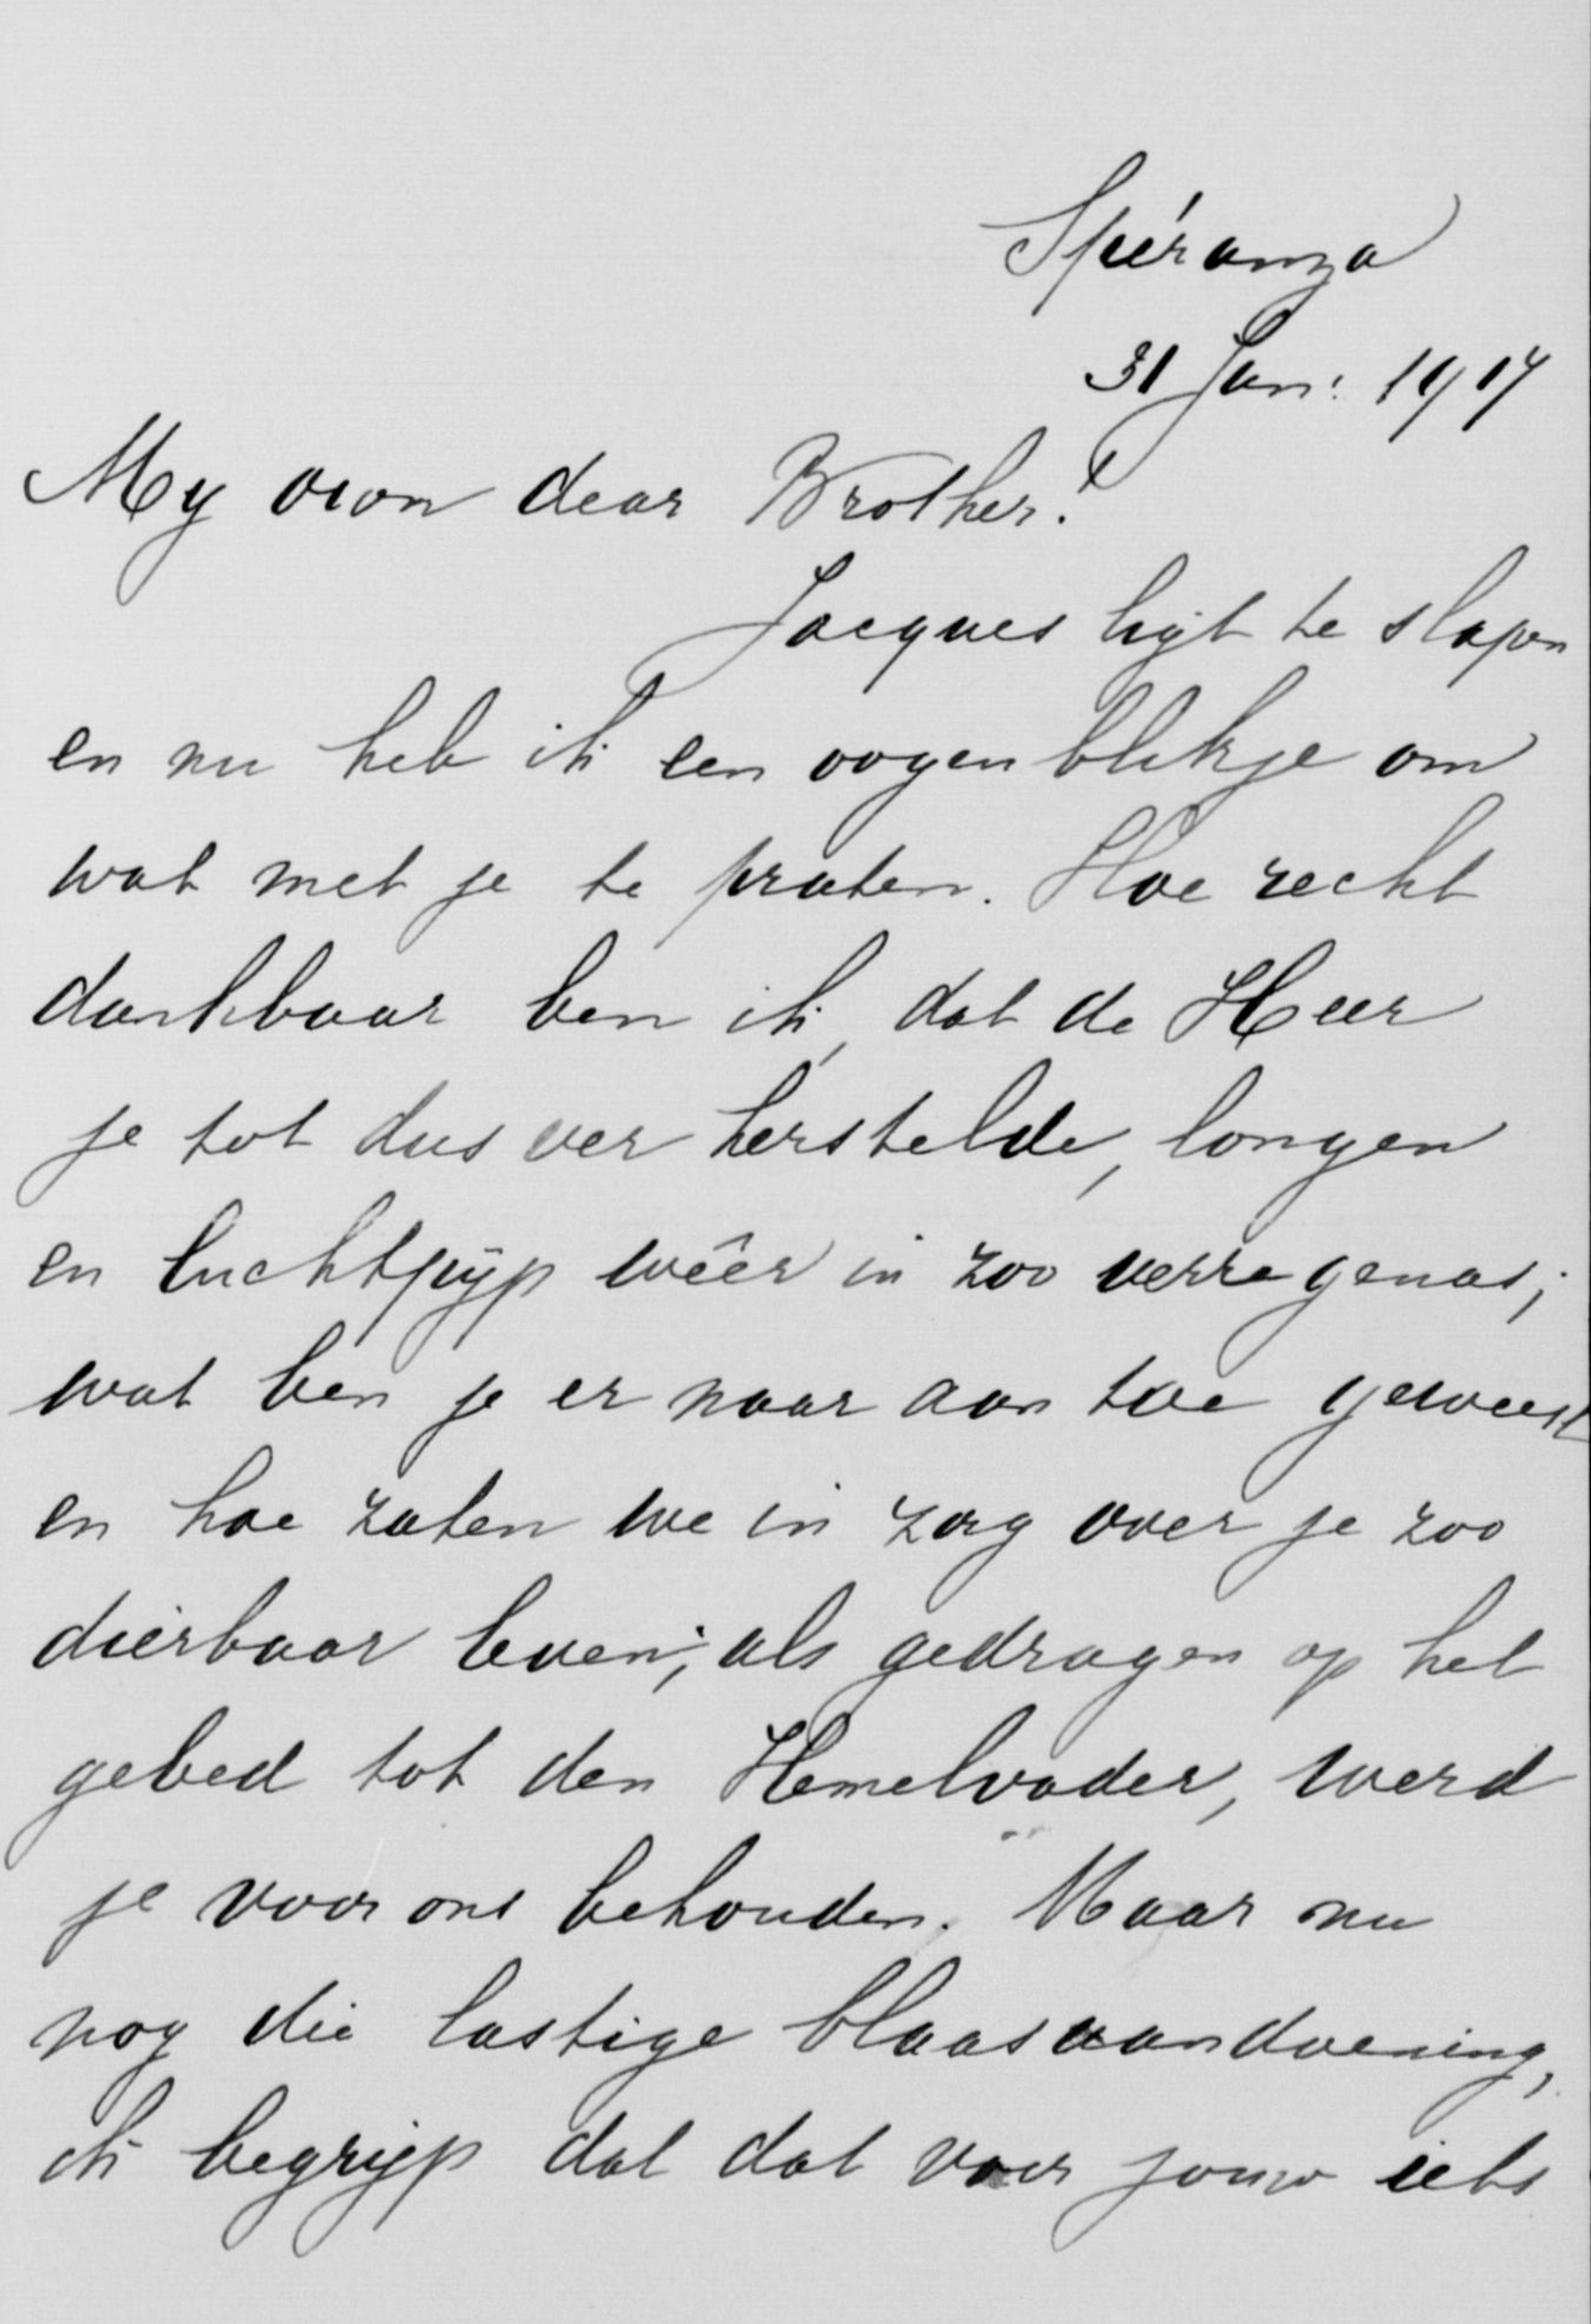 Spéranza
31 Jan: 1917
My own dear Brother!
Jacques ligt te slapen
en nu heb ik een oogenblikje om
wat met je te praten. Hoe recht
dankbaar ben ik, dat de Heer
je tot dus ver herstelde, longen
en luchtpijp wêer in zoo verre genas;
wat ben je er naar aan toe geweest
en hoe zaten we in zorg over je zoo
dierbaar leven; als gedragen op het
gebed tot den Hemelvader, werd
je voor ons behouden. Maar nu
nog die lastige blaasaandoening,
ik begrijp dat dat voor jouw iets